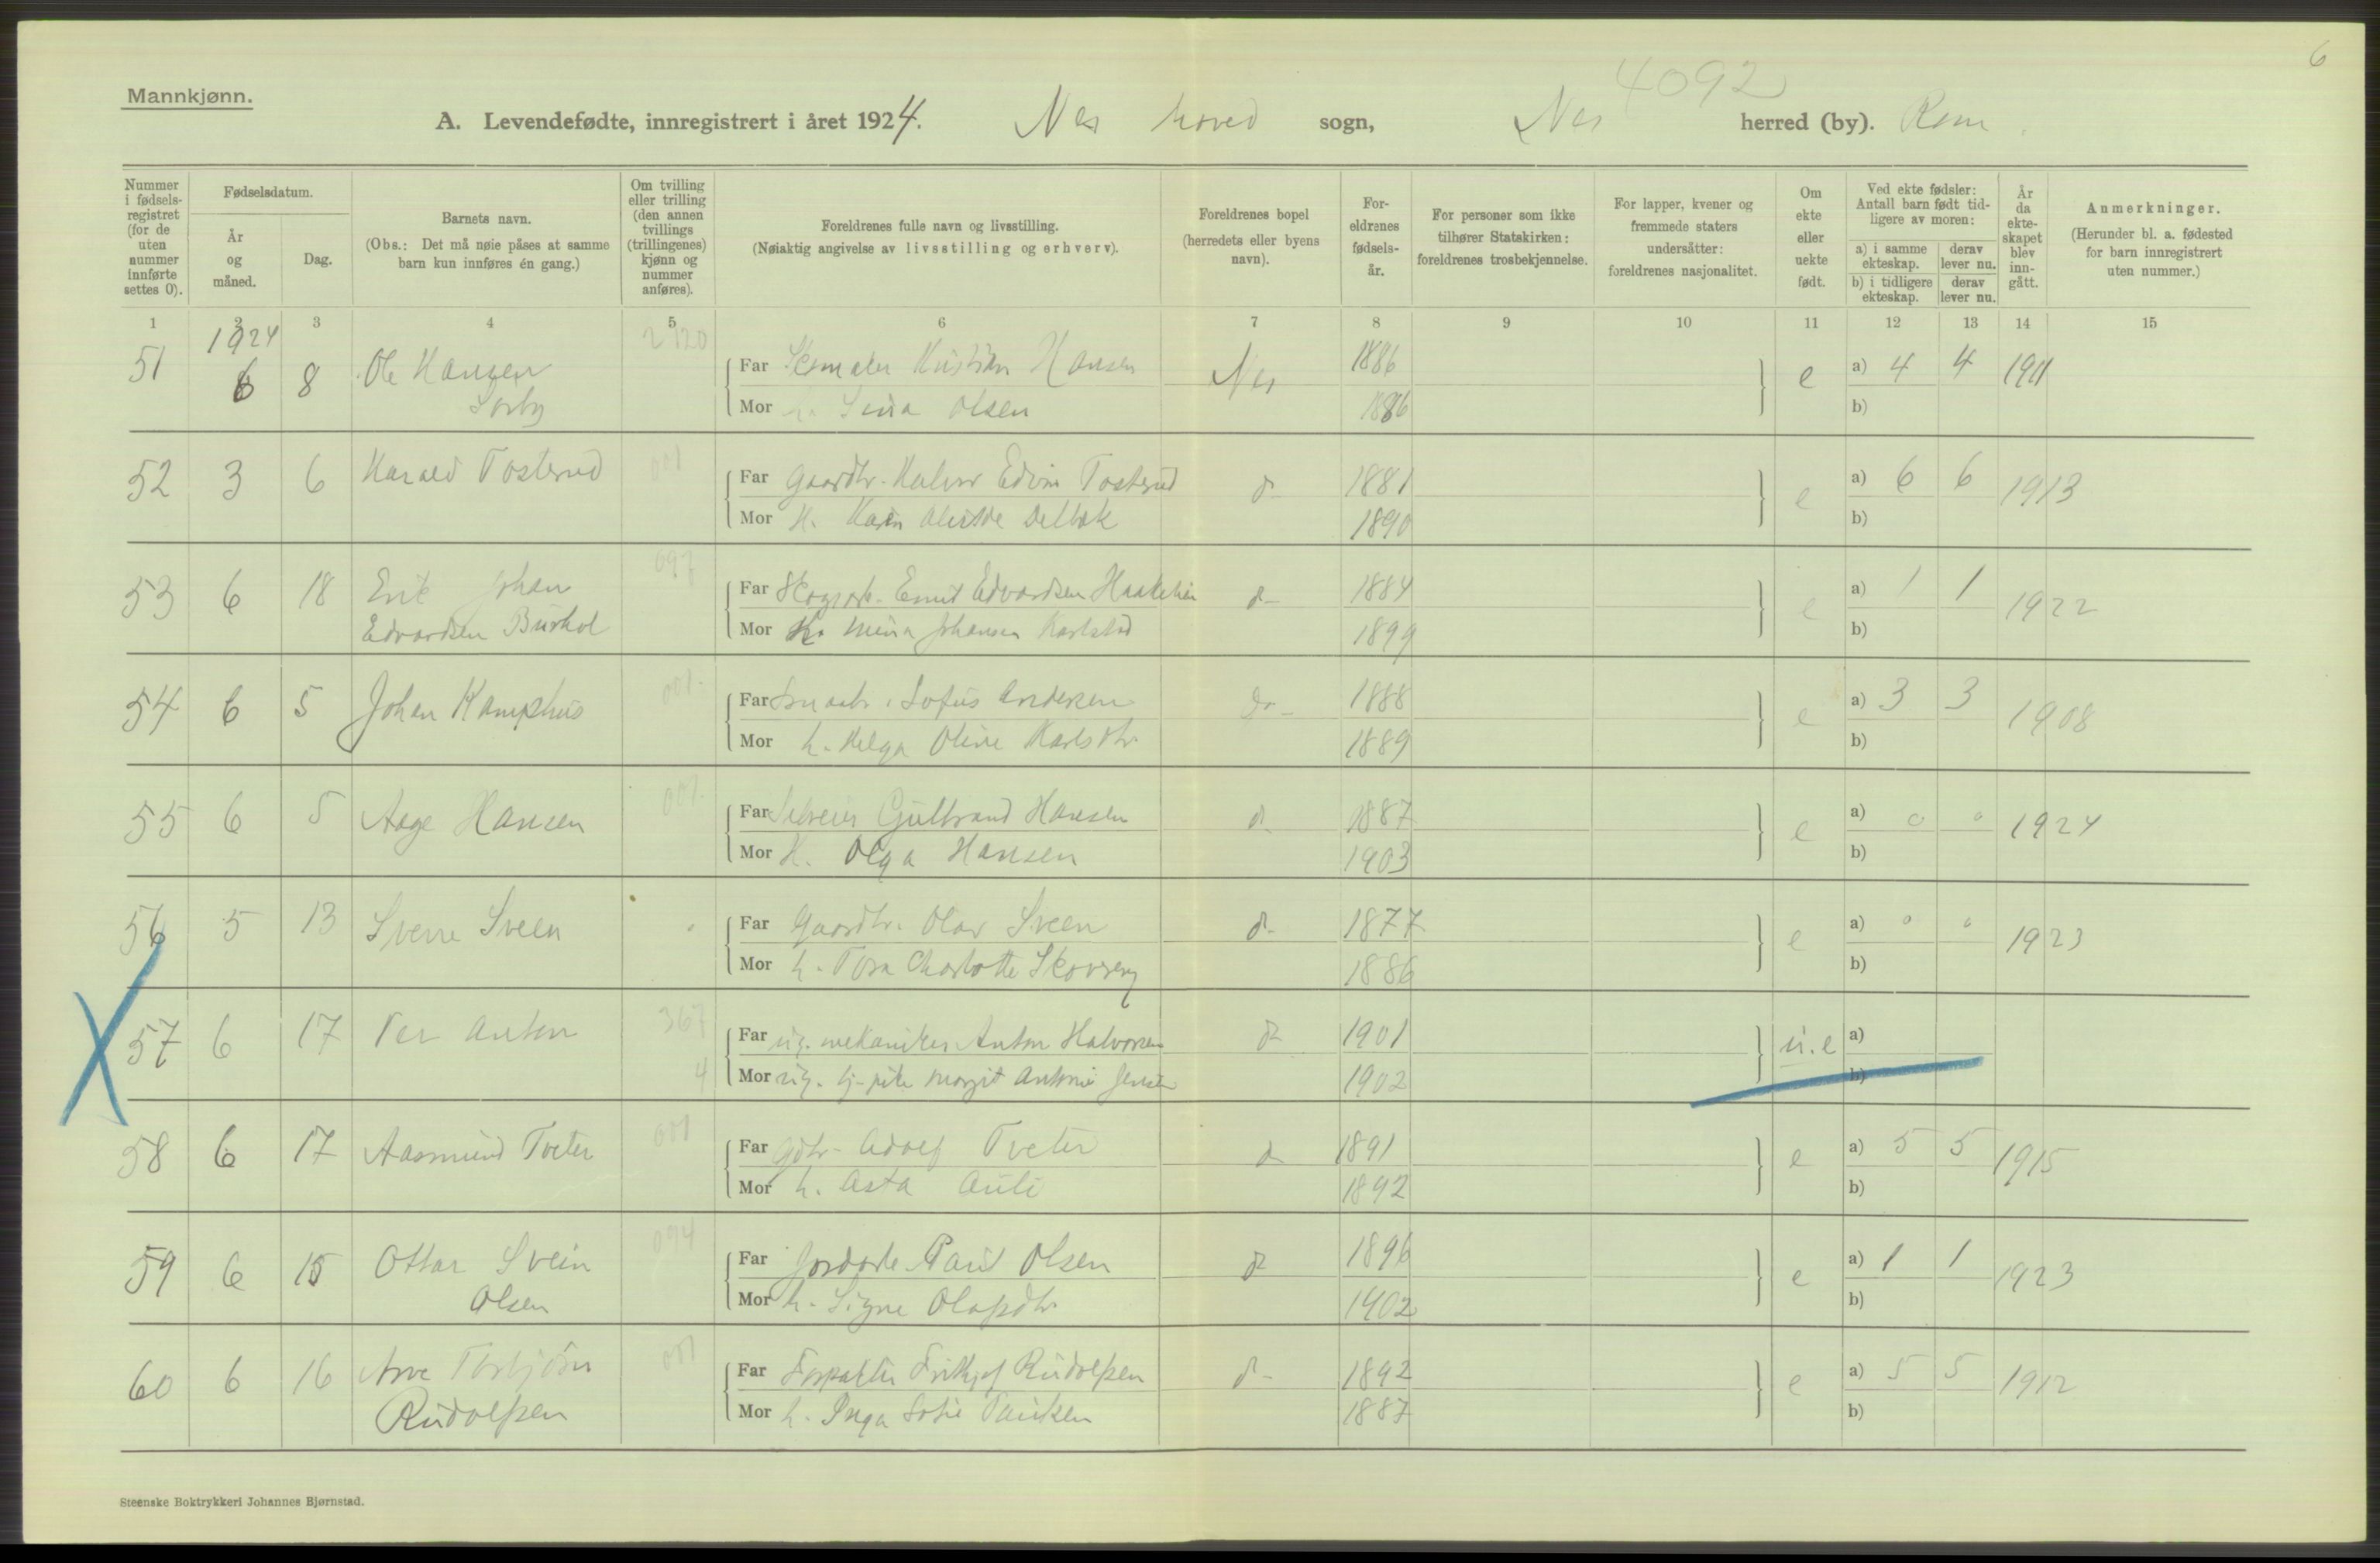 6
4092
Mannkjønn.
A. Levendefødte, innregistrert i året 1924. Nes hoved sogn, Nes herred (by). Rom.
Nummer i fødselsregistret (for de uten nummer innførte settes 0).
Fødselsdatum.
År og måned.
Dag.
Barnets navn.
(Obs.: Det må nøie påses at samme barn kun innføres én gang.)
Om tvilling eller trilling (den annen tvillings (trillingenes) kjønn og nummer anføres).
Foreldrenes fulle navn og livsstilling.
(Nøiaktig angivelse av livsstilling og erhverv).
Foreldrenes bopel (herredets eller byens navn).
Foreldrenes fødselsår.
For personer som ikke tilhører Statskirken: foreldrenes trosbekjennelse.
For lapper, kvener og fremmede staters undersåtter: foreldrenes nasjonalitet.
Om ekte eller uekte født.
Ved ekte fødsler: Antall barn født tidligere av moren:
a) i samme ekteskap. derav lever nu.
b) i tidligere ekteskap. derav lever nu.
År da ekteskapet blev inngått.
Anmerkninger.
(Herunder bl. a. fødested for barn innregistrert uten nummer.)
1 2 3 4 5 6 7 8 9 10 11 12 13 14 15
1924
51 6 8 Ole Hansen Far Kristian Hansen Nes 1886 e a) 4 4 1911
Sørby Mor h. Olsen 1886 b)
52 3 6 Harald Tosterud 001 Far Gaardbr. Halvor Edvin Tosterud d- 1881 e a) 6 6 1913
Mor H. Karen Delbæk 1890 b)
53 6 18 Erik Johan 097 Far Skogsarb. Emil Edvardsen d- 1884 e a) 1 1 1922
Edvardsen Mor Mina Johansen Karlstad 1899 b)
54 6 5 Johan Kamphus 001 Far Sofus Andersen do- 1888 e a) 3 3 1908
Mor h. Helga Oline 1889 b)
55 6 5 Aage Hansen 001 Far Selveier Gulbrand Hansen d- 1887 e a) 0 0 1924
Mor H. Olga Hansen 1903 b)
56 5 13 Sverre Sveen Far Gaardbr. Olav Sveen d- 1877 e a) 0 0 1923
Mor h. Tora Charlotte 1886 b)
57 6 17 Per Anton 367 Far ug. mekaniker Anton Halvorsen d 1901 u.e a)
4 Mor ug. tj.pike Margit Antonie Jensen 1902 b)
58 6 17 Aasmund Tveter 001 Far Gdbr. Adolf Tveter d 1891 e a) 5 5 1915
Mor h. Asta Auli 1892 b)
59 6 15 Ottar Svein 094 Far Jordarb. Paul Olsen d 1896 e a) 1 1 1923
Olsen Mor h. Signe 1902 b)
60 6 16 Arve Torbjörn 001 Far Forpakter Frithjof Rudolfsen d- 1892 e a) 5 5 1912
Rudolfsen Mor h. Inga Sofie Paulsen 1887 b)
Steenske Boktrykkeri Johannes Bjørnstad.